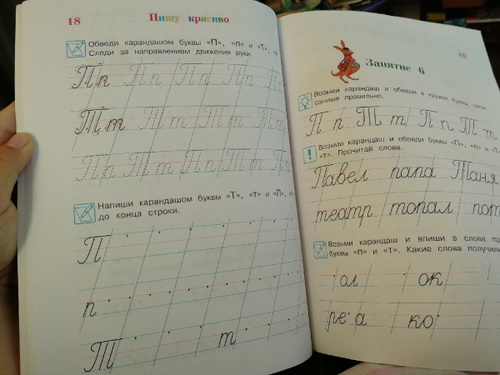 18 Пишу красиво
Обведи карандашом буквы «П», «п» и «Т»,
Следи за направлением движения руки.
П п П п П п П п
Т т Т т Т т Т т
П п Т т П п Т т П п
Напиши карандашом буквы «Т», «т» и «П»,
до конца строки.
П
п
Т т
Занятие 6
Возьми карандаш и обведи в кружок буквы,
санные правильно.
П п Т т П п Т т
Возьми карандаш и обведи буквы «П», «п» и
«Т». Прочитай слова.
Павел папа Таня
театр топал
Возьми карандаш и впиши в слова
буквы «П» и «Т». Какие слова
ол ок
ре а ко